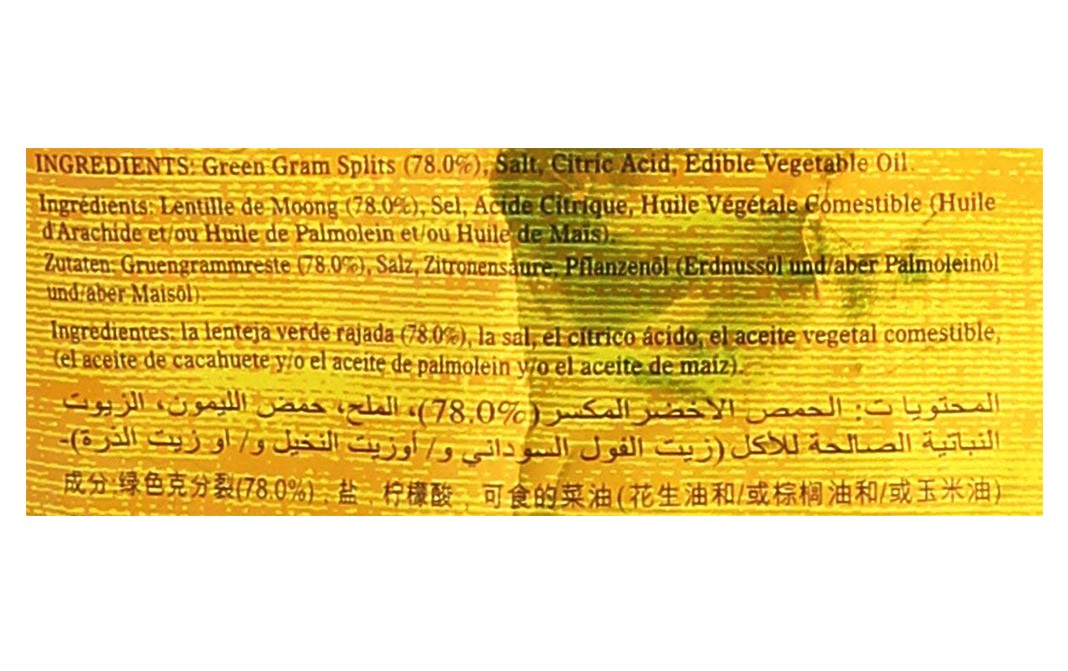 INGREDIENTS: Green Gram Splits (78.0%), Salt, Citric Acid, Edible Vegetable Oil.
Ingrédients: Lentille de Moong (78.0%), Sel, Acide Citrique, Huile Végétale Comestible (Huile
d'Arachide et/ou Huile de Palmolein et/ou Huile de Maïs).
Zutaten: Gruengrammreste (78.0%), Salz, Zitronensäure, Pflanzenöl (Erdnussöl und/aber Palmoleinöl
und/aber Maisöl).
Ingredientes: la lenteja verde rajada (78.0%), la sal, el cítrico ácido, el aceite vegetal comestible,
(el aceite de cacahuete y/o el aceite de palmolein y/o el aceite de maíz).
المحتويا ت: الحمص الاخضر المكسر (78.0%)، الملح، حمض الليمون، الزيوت
النباتية الصالحة للأكل (زيت الفول السوداني و/ أوزيت النخيل و/ او زيت الذرة)-
成分:绿色克分裂(78.0%), 盐, 柠檬酸, 可食的菜油(花生油和/或棕榈油和/或玉米油)